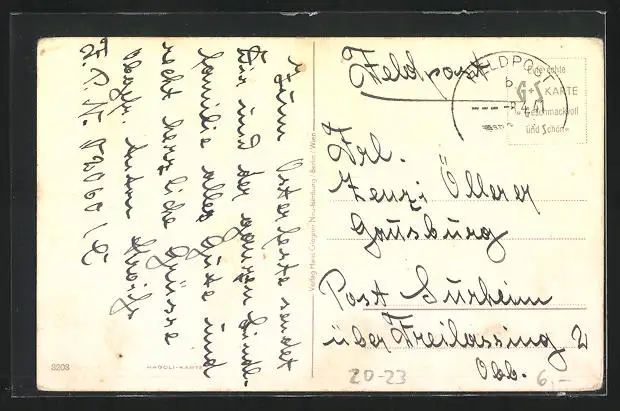 Zum Osterfeste sendet
Dir und der ganzen
Familie alles Gute und
recht herzliche Grüsse
Obgfr. Anton
F.P.N.
Feldpost
FELDPOST
b
Eine echte
G+S KARTE
Geschmackvoll
und Schön
Frl.
Zenzi Öllerer
Gausburg
Post Surheim
über Freilassing 2
Obb.
Verlag Hans Gregor
Berlin / Wien
8208
HAGOLI-KARTE
20-23
6,-